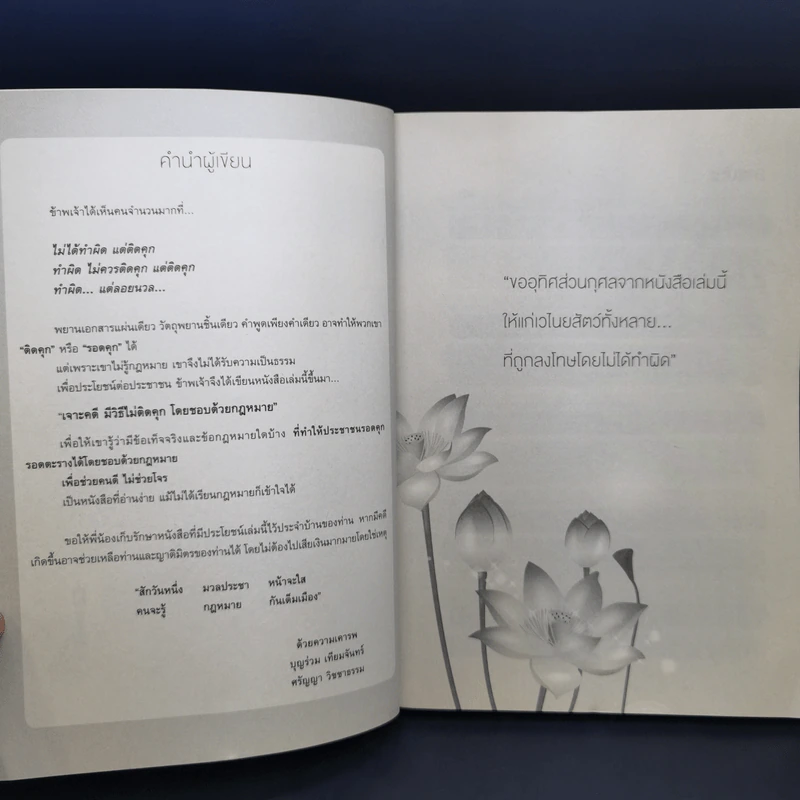 คำนำผู้เขียน
ข้าพเจ้าได้เห็นคนจำนวนมากที่...
ไม่ได้ทำผิด แต่ติดคุก
ทำผิด ไม่ควรติดคุก แต่ติดคุก
ทำผิด... แต่ลอยนวล...
พยานเอกสารแผ่นเดียว วัตถุพยานชิ้นเดียว คำพูดเพียงคำเดียว อาจทำให้พวกเขา
"ติดคุก" หรือ "รอดคุก" ได้
แต่เพราะเขาไม่รู้กฎหมาย เขาจึงไม่ได้รับความเป็นธรรม
เพื่อประโยชน์ต่อประชาชน ข้าพเจ้าจึงได้เขียนหนังสือเล่มนี้ขึ้นมา...
"เจาะคดี มีวิธีไม่ติดคุก โดยชอบด้วยกฎหมาย"
เพื่อให้เขารู้ว่ามีข้อเท็จจริงและข้อกฎหมายใดบ้าง ที่ทำให้ประชาชนรอดคุก
รอดตะรางได้โดยชอบด้วยกฎหมาย
เพื่อช่วยคนดี ไม่ช่วยโจร
เป็นหนังสือที่อ่านง่าย แม้ไม่ได้เรียนกฎหมายก็เข้าใจได้
ขอให้พี่น้องเก็บรักษาหนังสือที่มีประโยชน์เล่มนี้ไว้ประจำบ้านของท่าน หากมีคดี
เกิดขึ้นอาจช่วยเหลือท่านและญาติมิตรของท่านได้ โดยไม่ต้องไปเสียเงินมากมายโดยใช่เหตุ
"สักวันหนึ่ง มวลประชา หน้าจะใส
คนจะรู้ กฎหมาย กันเต็มเมือง"
ด้วยความเคารพ
บุญร่วม เทียมจันทร์
ศรัญญา วิชชาธรรม
"ขออุทิศส่วนกุศลจากหนังสือเล่มนี้
ให้แก่เวไนยสัตว์ทั้งหลาย...
ที่ถูกลงโทษโดยไม่ได้ทำผิด"